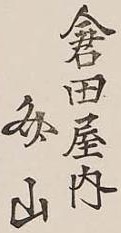 倉田屋内
糸山